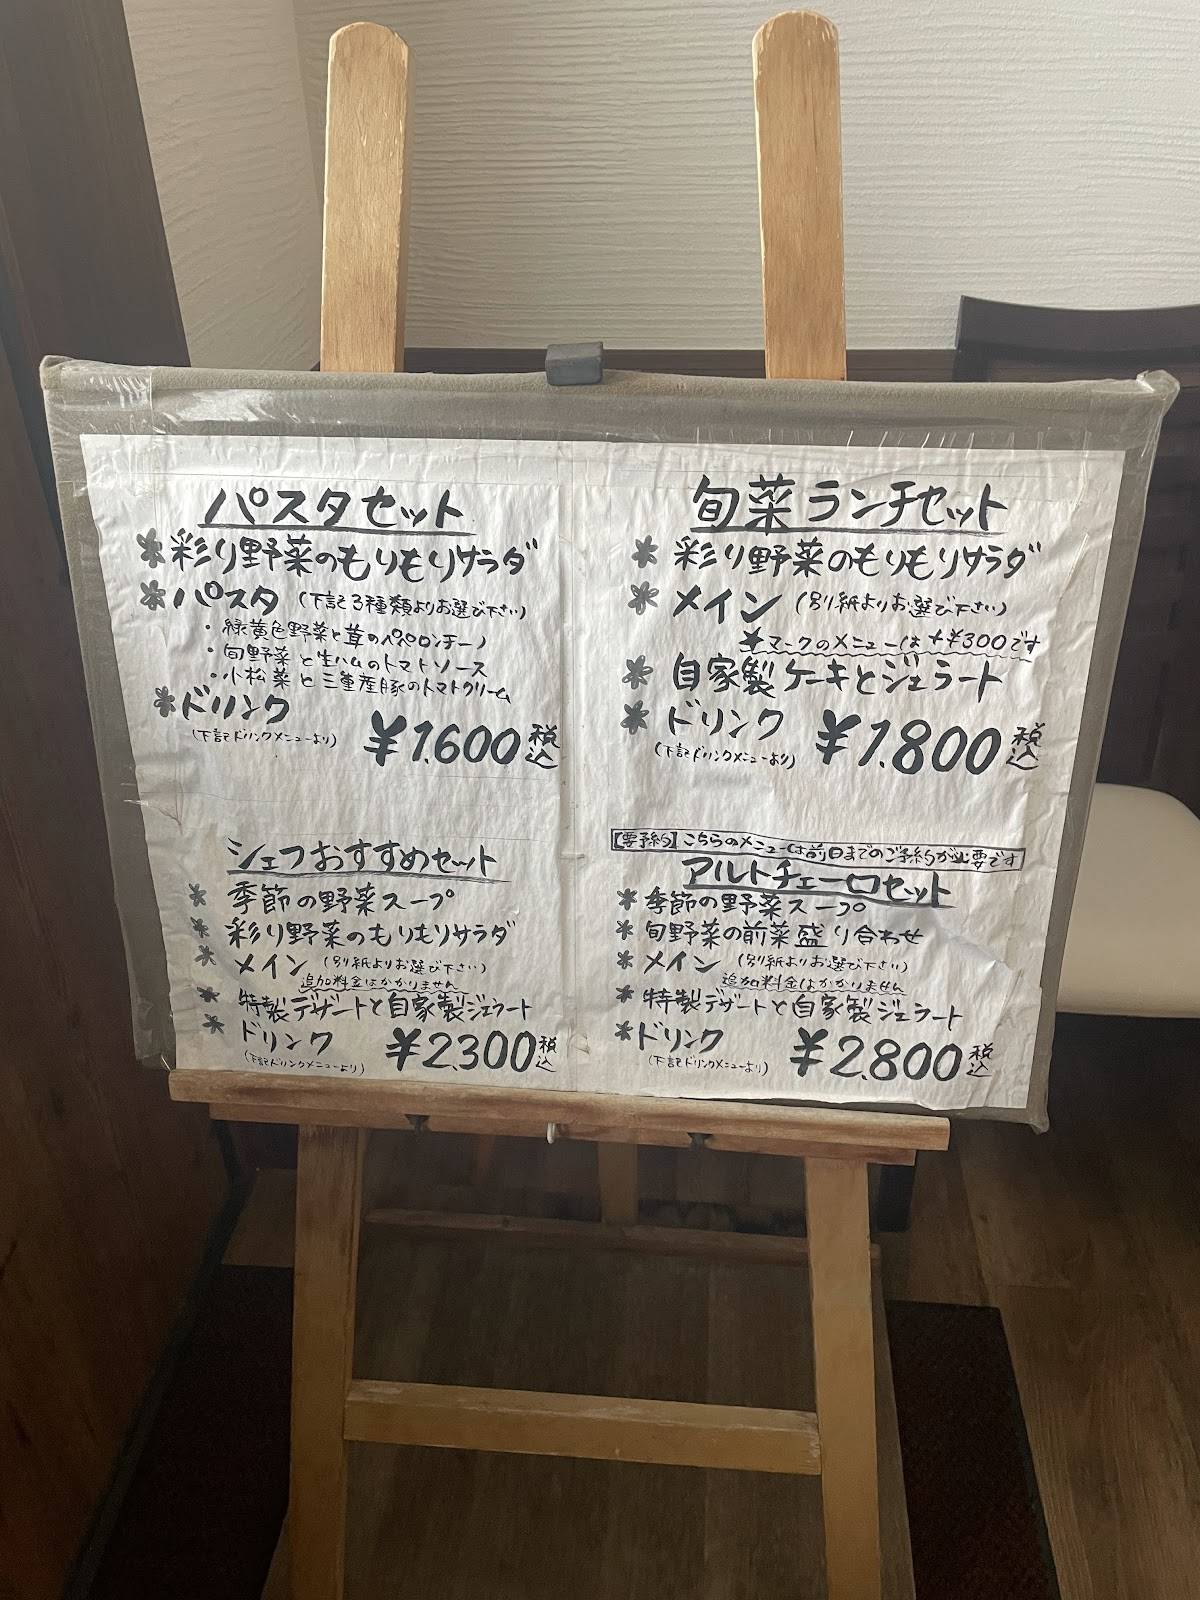 パスタセット
＊彩り野菜のもりもりサラダ
＊パスタ（下記3種類よりお選び下さい）
・緑黄色野菜と茸のペペロンチーノ
・旬野菜と生ハムのトマトソース
・小松菜と三重産豚のトマトクリーム
＊ドリンク
（下記ドリンクメニューより）
¥1.600税込
旬菜ランチセット
＊彩り野菜のもりもりサラダ
＊メイン（別紙よりお選び下さい）
★マークのメニューは＋¥300です
＊自家製ケーキとジェラート
＊ドリンク
（下記ドリンクメニューより）
¥1.800税込
シェフおすすめセット
＊季節の野菜スープ
＊彩り野菜のもりもりサラダ
＊メイン（別紙よりお選び下さい）
追加料金はかかりません
＊特製デザートと自家製ジェラート
＊ドリンク
（下記ドリンクメニューより）
¥2.300税込
【要予約】こちらのメニューは前日までのご予約が必要です
アルトチェーロセット
＊季節の野菜スープ
＊旬野菜の前菜盛り合わせ
＊メイン（別紙よりお選び下さい）
追加料金はかかりません
＊特製デザートと自家製ジェラート
＊ドリンク
（下記ドリンクメニューより）
¥2.800税込